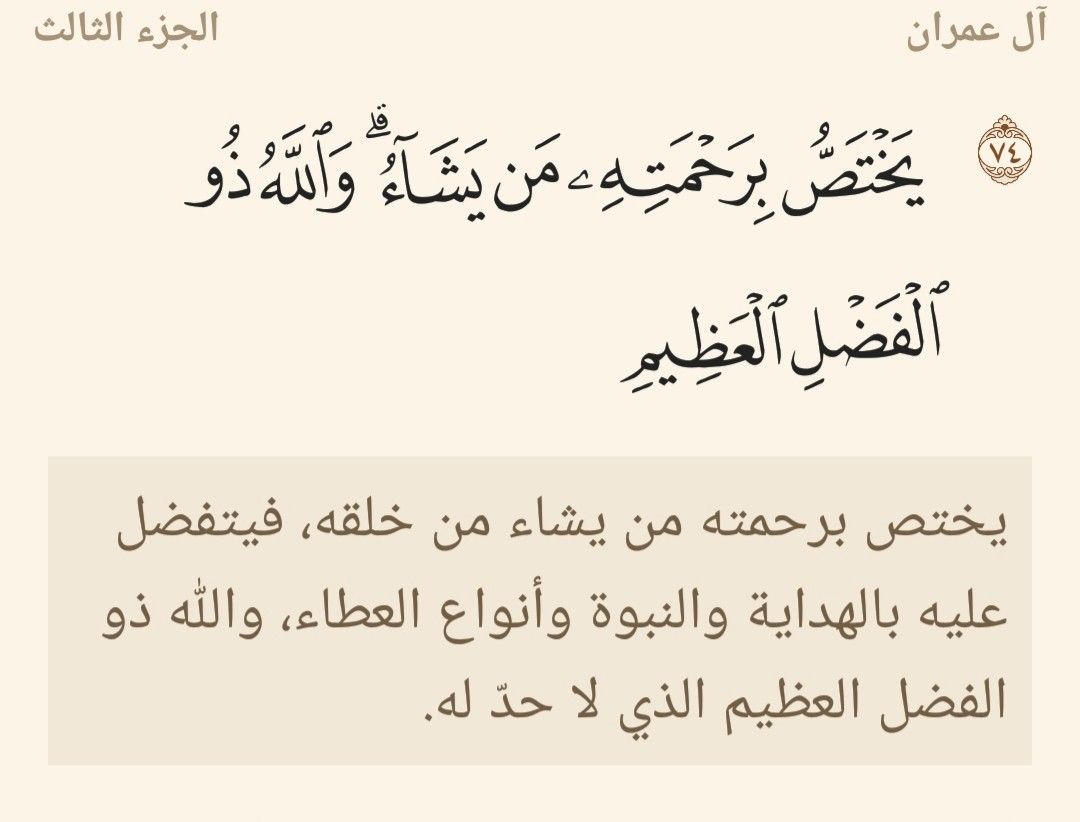 آل عمران
الجزء الثالث
٧٤ يَخۡتَصُّ بِرَحۡمَتِهِۦ مَن يَشَآءُۗ وَٱللَّهُ ذُو
ٱلۡفَضۡلِ ٱلۡعَظِيمِ
يختص برحمته من يشاء من خلقه، فيتفضل
عليه بالهداية والنبوة وأنواع العطاء، والله ذو
الفضل العظيم الذي لا حدّ له.